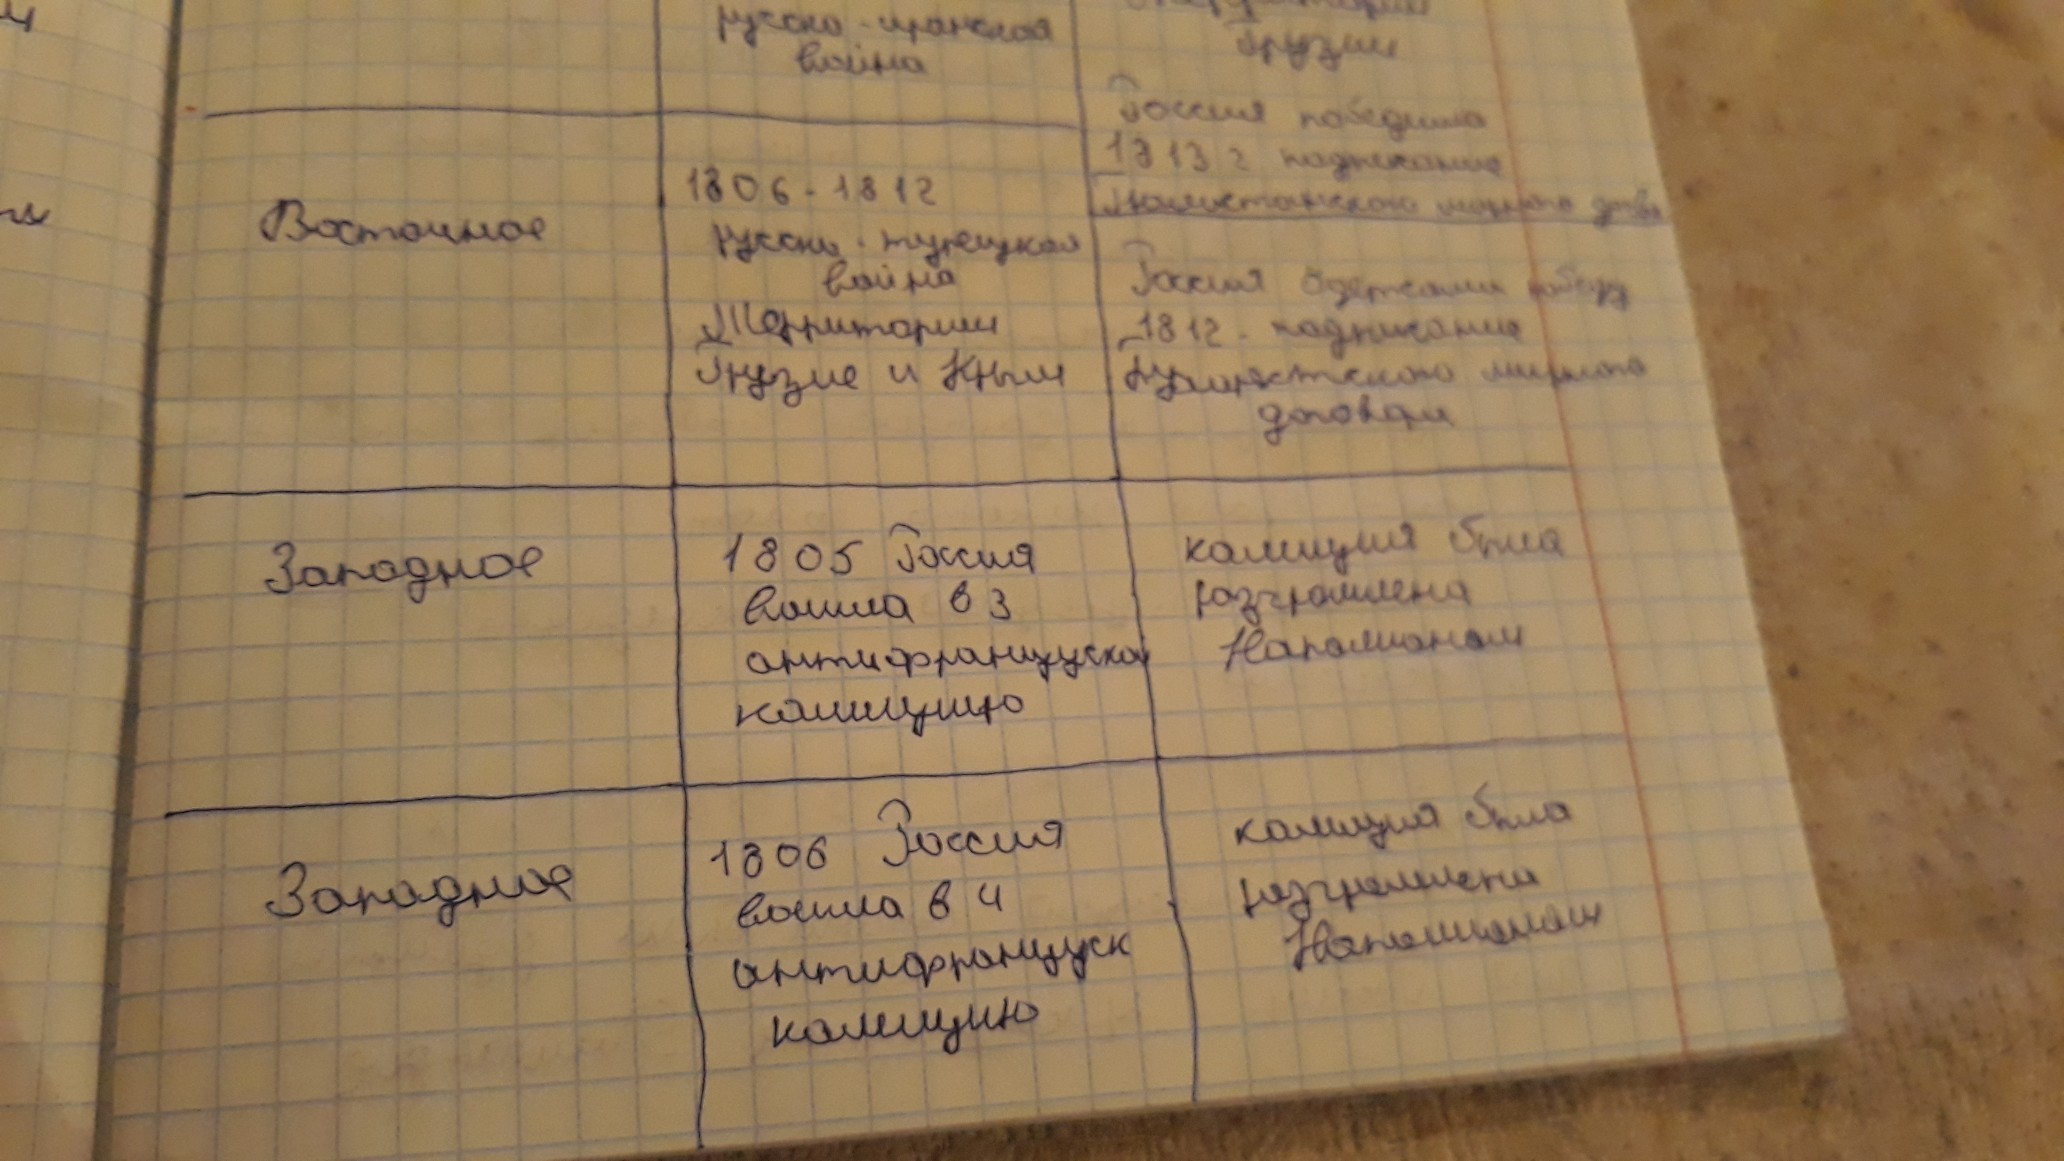 русско-иранская
война
Грузии
Россия победила
1813 г подписание
мирного
Восточное
1806-1812
русско-турецкая
война
Территории
Грузие и Крым
Россия одержала победу
1812. подписание
Бухарестского мирного
договора
Западное
1805 Россия
вошла в 3
антифранцузскою
коалицию
коалиция была
разгромлена
Наполионом
Западное
1806 Россия
вошла в 4
антифранцузск
коалицию
коалиция была
разгромлена
Наполионом